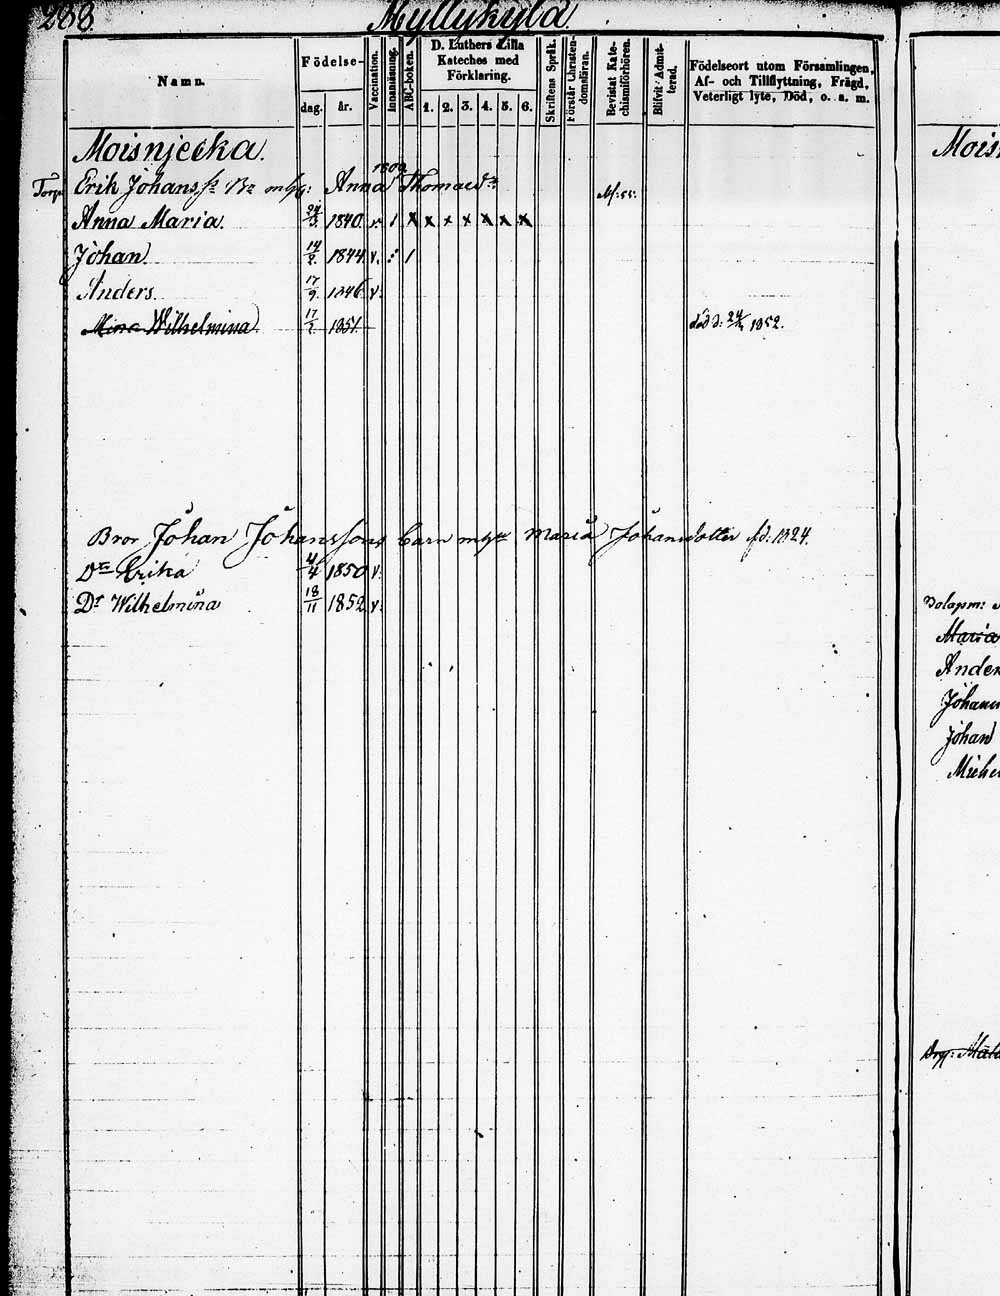 288.
Myllykylä
Namn.
Födelse-
dag.
år.
Vaccination.
Innanläsning.
ABC-boken.
D. Luthers Lilla
Kateches med
Förklaring.
1. 2. 3. 4. 5. 6.
Skriftens Språk.
Förstår Christen-
domsläran.
Bevistat Kate-
chismiförhören.
Blifvit Admit-
terad.
Födelseort utom Församlingen,
Af- och Tillflyttning, Frägd,
Veterligt lyte, Död, o. a. m.
Moisnjecka.
1809
Torp. Erik Johans Anna Thomaed:r
Anna Maria. 24/3 1840. v. 1 x x x x x x x
Johan. 14/2. 1844 v. : 1
Anders. 17/9. 1846 v.
Wilhelmina 17/ 1851 död d: 24/ 1852.
Bror Johan Johanssons barn Maria Johansdotter fd: 1824.
Dr Erika 4/4 1850 v.
Dr Wilhelmina 18/11 1852 v.
Mois
Bolapm:
Maria
Ander
Johan
Michel